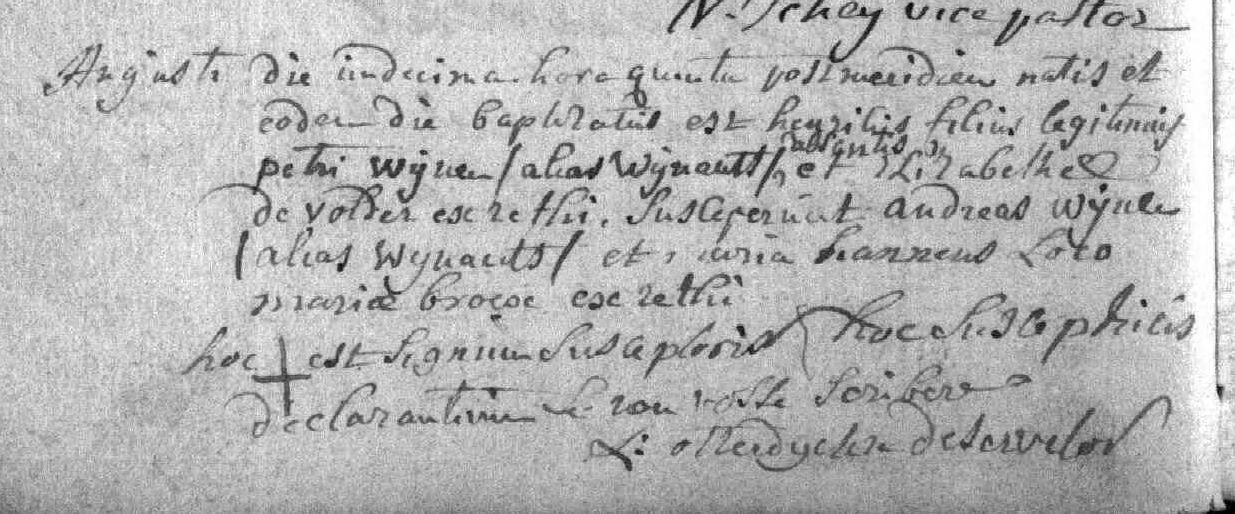 N. Schey vice pastor
Augusti die undecima hora quinta post meridiem natus et
eodem die baptizatus est henricus filius legitimus
absentis
petri wijnen /alias Wijnants/, et Elizabethæ
de volder ex rethi. Susceperunt andreas wijnen
/alias Wynants/ et maria hannens Loco
mariæ broexe ex rethi
hoc + est signum susceptoris hoc susceptricis
declarantium se non posse scribere
L: ottendyckx deservitor